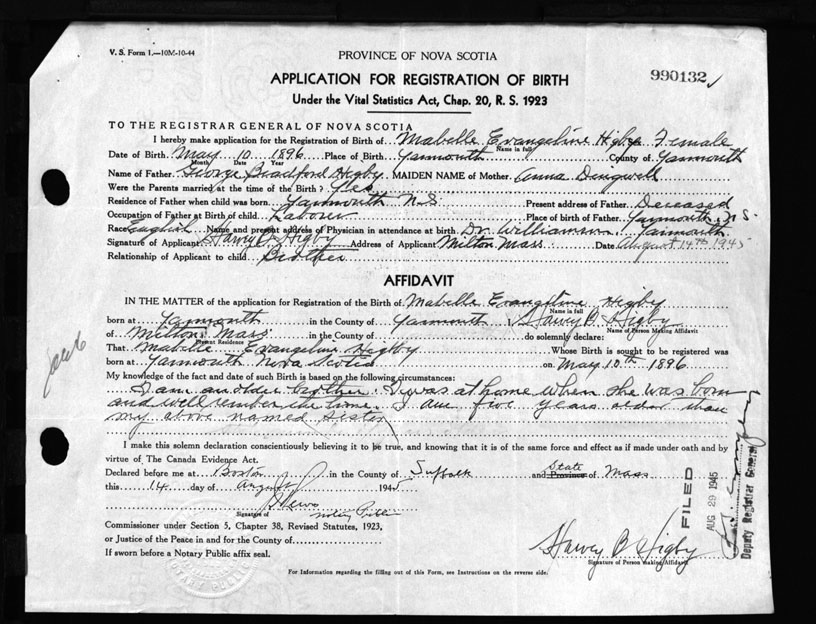 V. S. Form 1.—10M-10-44
PROVINCE OF NOVA SCOTIA
990132
APPLICATION FOR REGISTRATION OF BIRTH
Under the Vital Statistics Act, Chap. 20, R. S. 1923
TO THE REGISTRAR GENERAL OF NOVA SCOTIA
I hereby make application for the Registration of Birth of Mabelle Evangeline Higby Female
Name in full
Date of Birth May 10 1896 Place of Birth Yarmouth County of Yarmouth
Month Date Year
Name of Father George Bradford Higby MAIDEN NAME of Mother Anna Dingwell
Were the Parents married at the time of the Birth? Yes
Residence of Father when child was born Yarmouth N.S Present address of Father Deceased
Occupation of Father at Birth of child Laborer Place of birth of Father Yarmouth N.S.
Race English Name and present address of Physician in attendance at birth Dr. Williamson Yarmouth
Signature of Applicant Harvey B Higby Address of Applicant Milton Mass Date August 14TH 1945
Relationship of Applicant to child Brother
AFFIDAVIT
IN THE MATTER of the application for Registration of the Birth of Mabelle Evangeline Higby
Name in full
born at Yarmouth in the County of Yarmouth I Harvey B. Higby
Name of Person Making Affidavit
of Milton Mass in the County of do solemnly declare:
Present Residence
That Mabelle Evangeline Higby Whose Birth is sought to be registered was
born at Yarmouth Nova Scotia on May 10th 1896
My knowledge of the fact and date of such Birth is based on the following circumstances:
I am an older brother. I was at home when she was born
and well the time. I am five years older than
my above named sister
I make this solemn declaration conscientiously believing it to be true, and knowing that it is of the same force and effect as if made under oath and by
virtue of The Canada Evidence Act.
Declared before me at Boston in the County of Suffolk and State Province of Mass
this 14 day of August 1945
Signature of
Commissioner under Section 5, Chapter 38, Revised Statutes, 1923,
or Justice of the Peace in and for the County of
If sworn before a Notary Public affix seal.
Harvey B Higby
Signature of Person Making Affidavit
For Information regarding the filling out of this Form, see Instructions on the reverse side.
FILED
AUG 29 1945
Deputy Registrar General
NOTARY PUBLIC